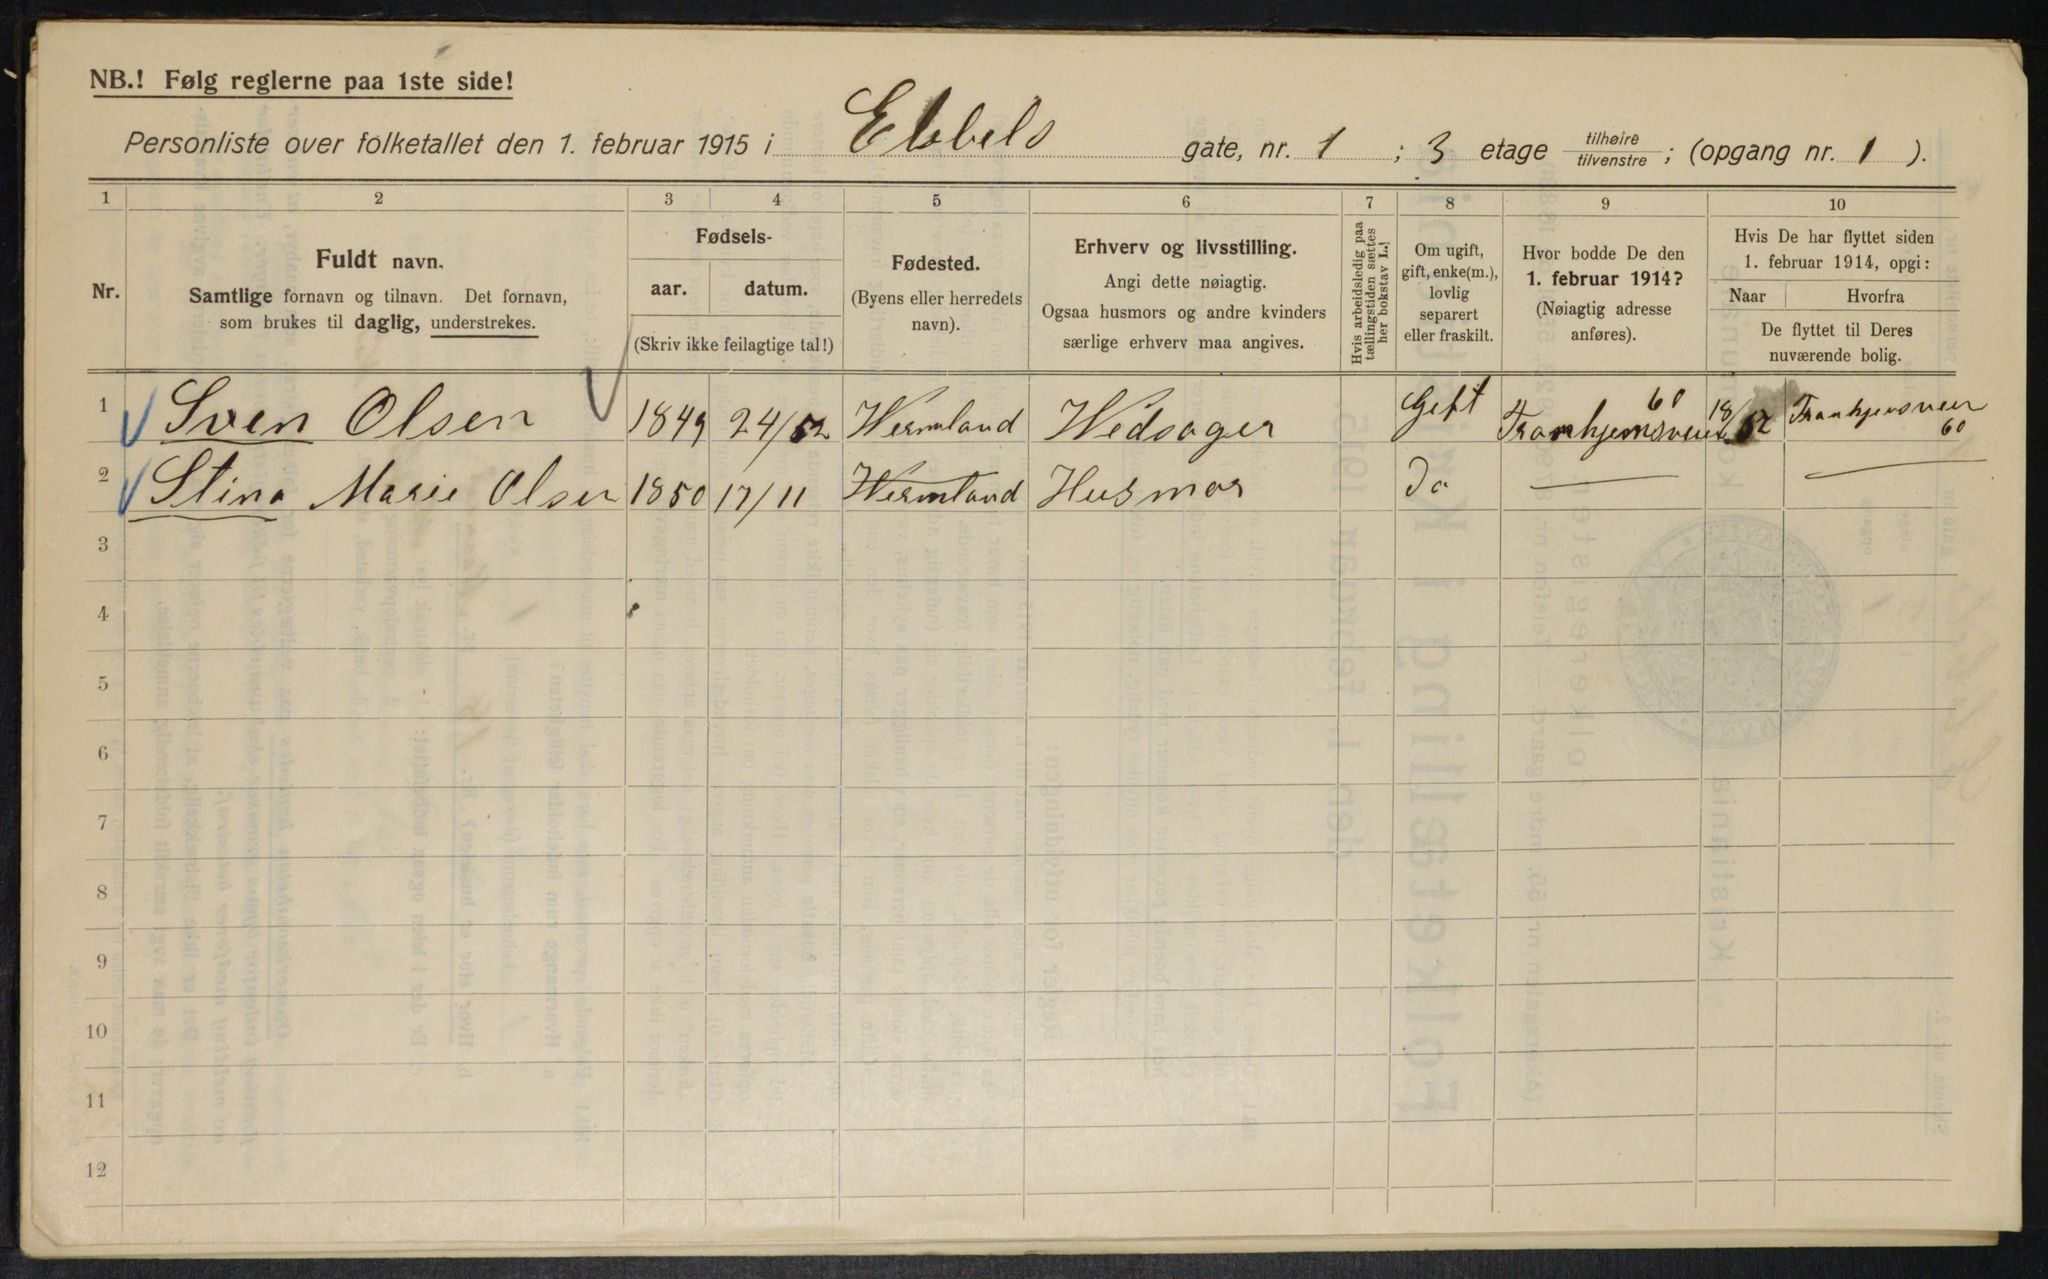 NB.! Følg reglerne paa 1ste side!
Personliste over folketallet den 1. februar 1915 i Ebbels gate, nr. 1 ; 3 etage tilhøire/tilvenstre ; (opgang nr. 1 ).
1 2 3 4 5 6 7 8 9 10
Nr.
Fuldt navn.
Samtlige fornavn og tilnavn. Det fornavn,
som brukes til daglig, understrekes.
Fødsels-
aar. datum.
(Skriv ikke feilagtige tal!)
Fødested.
(Byens eller herredets
navn).
Erhverv og livsstilling.
Angi dette nøiagtig.
Ogsaa husmors og andre kvinders
særlige erhverv maa angives.
Hvis arbeidsledig paa
tællingstiden sættes
her bokstav L.!
Om ugift,
gift, enke(m.),
lovlig
separert
eller fraskilt.
Hvor bodde De den
1. februar 1914?
(Nøiagtig adresse
anføres).
Hvis De har flyttet siden
1. februar 1914, opgi:
Naar Hvorfra
De flyttet til Deres
nuværende bolig.
1 Sven Olsen 1849 24/52 Wermland Wedsager Gift 60 18/ 52 Tranhjemsveien 60
2 Stina Marie Olsen 1850 17/11 Wermland Husmor Do —
3
4
5
6
7
8
9
10
11
12